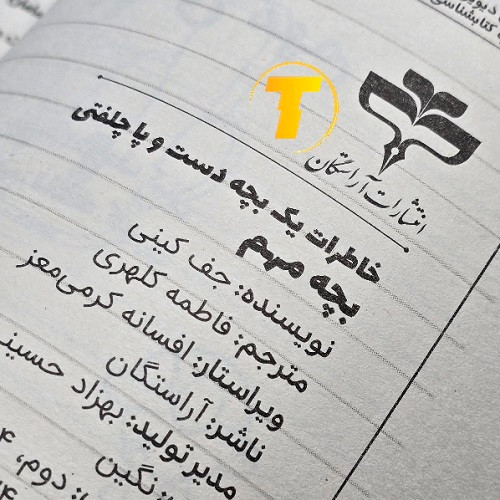 انتشارات آراستگان
خاطرات یک بچه دست و پا چلفتی
بچه مهم
نویسنده: جف کینی
مترجم: فاطمه کلهری
ویراستار: افسانه کرمی‌مغز
ناشر: آراستگان
مدیر تولید: بهزاد حسینی
نگین
دوم،